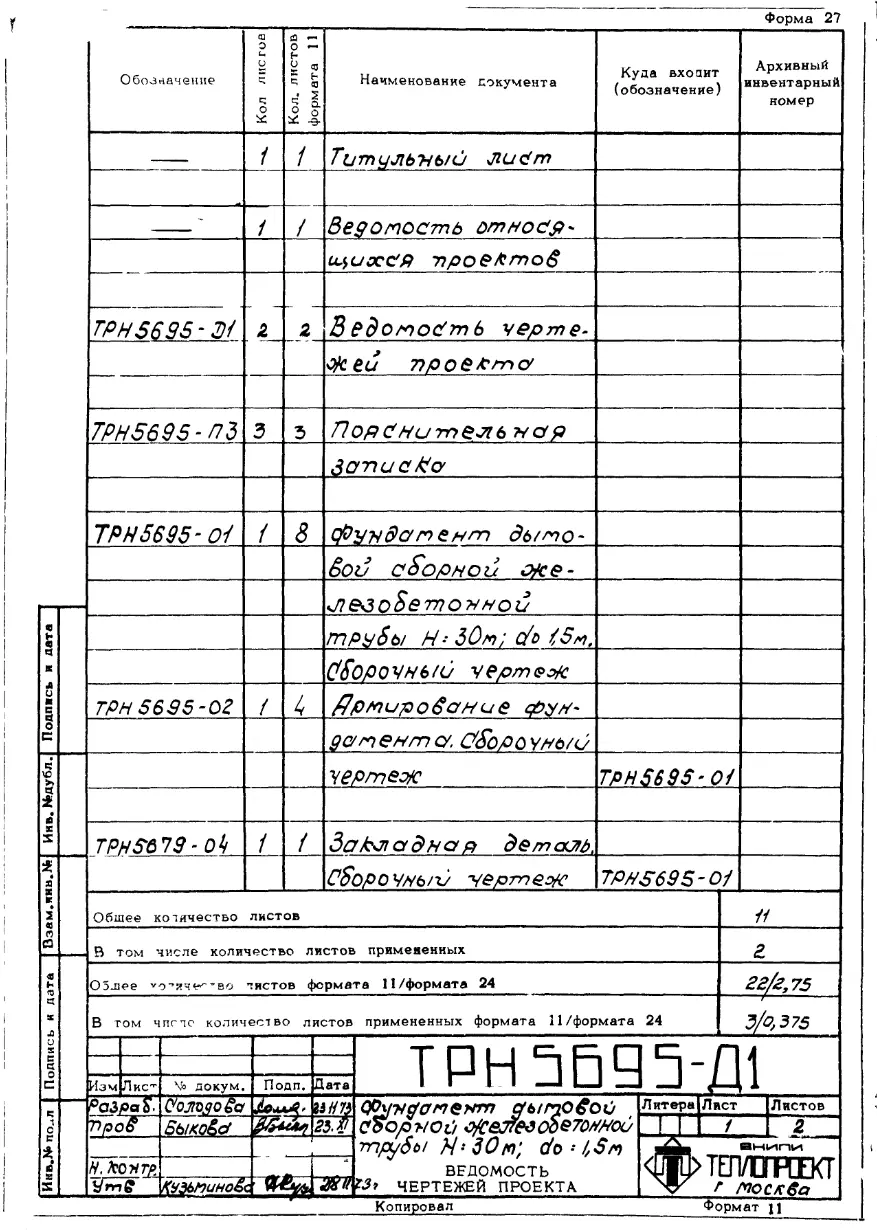 Форма 27
Обозначение
Кол листов
Кол. листов формата 11
Наименование документа
Куда входит (обозначение)
Архивный инвентарный номер
— 1 1 Титульный лист
— 1 1 Ведомость относя-
щихся проектов
ТРН5695-Д1 2 2 Ведомость черте-
жей проекта
ТРН5695-ПЗ 3 3 Пояснительная
записка
ТРН5695-01 1 8 Фундамент дымо-
вой сборной же-
лезобетонной
трубы Н=30м; do 1,5м.
Сборочный чертеж
ТРН 5695-02 1 4 Армирование фун-
дамента. Сборочный
чертеж ТРН5695-01
ТРН5679-04 1 1 Закладная деталь.
Сборочный чертеж ТРН5695-01
Общее количество листов 11
В том числе количество листов примененных 2
Общее количество листов формата 11/формата 24 22/2,75
В том числе количество листов примененных формата 11/формата 24 3/0,375
Подпись и дата
Инв. №дубл.
Взам.инв.№
Подпись и дата
Инв.№ подл
ТРН5695-Д1
Изм Лист № докум. Подп. Дата
Разраб. Солодова 23 11 73
Пров Быкова 23.XI
Н. контр.
Утв Кузьминова 28 11 73г
Фундамент дымовой
сборной железобетонной
трубы Н=30м; do=1,5м
ВЕДОМОСТЬ
ЧЕРТЕЖЕЙ ПРОЕКТА
Литера Лист Листов
1 2
ВНИПИ
ТЕПЛОПРОЕКТ
г Москва
Копировал
Формат 11